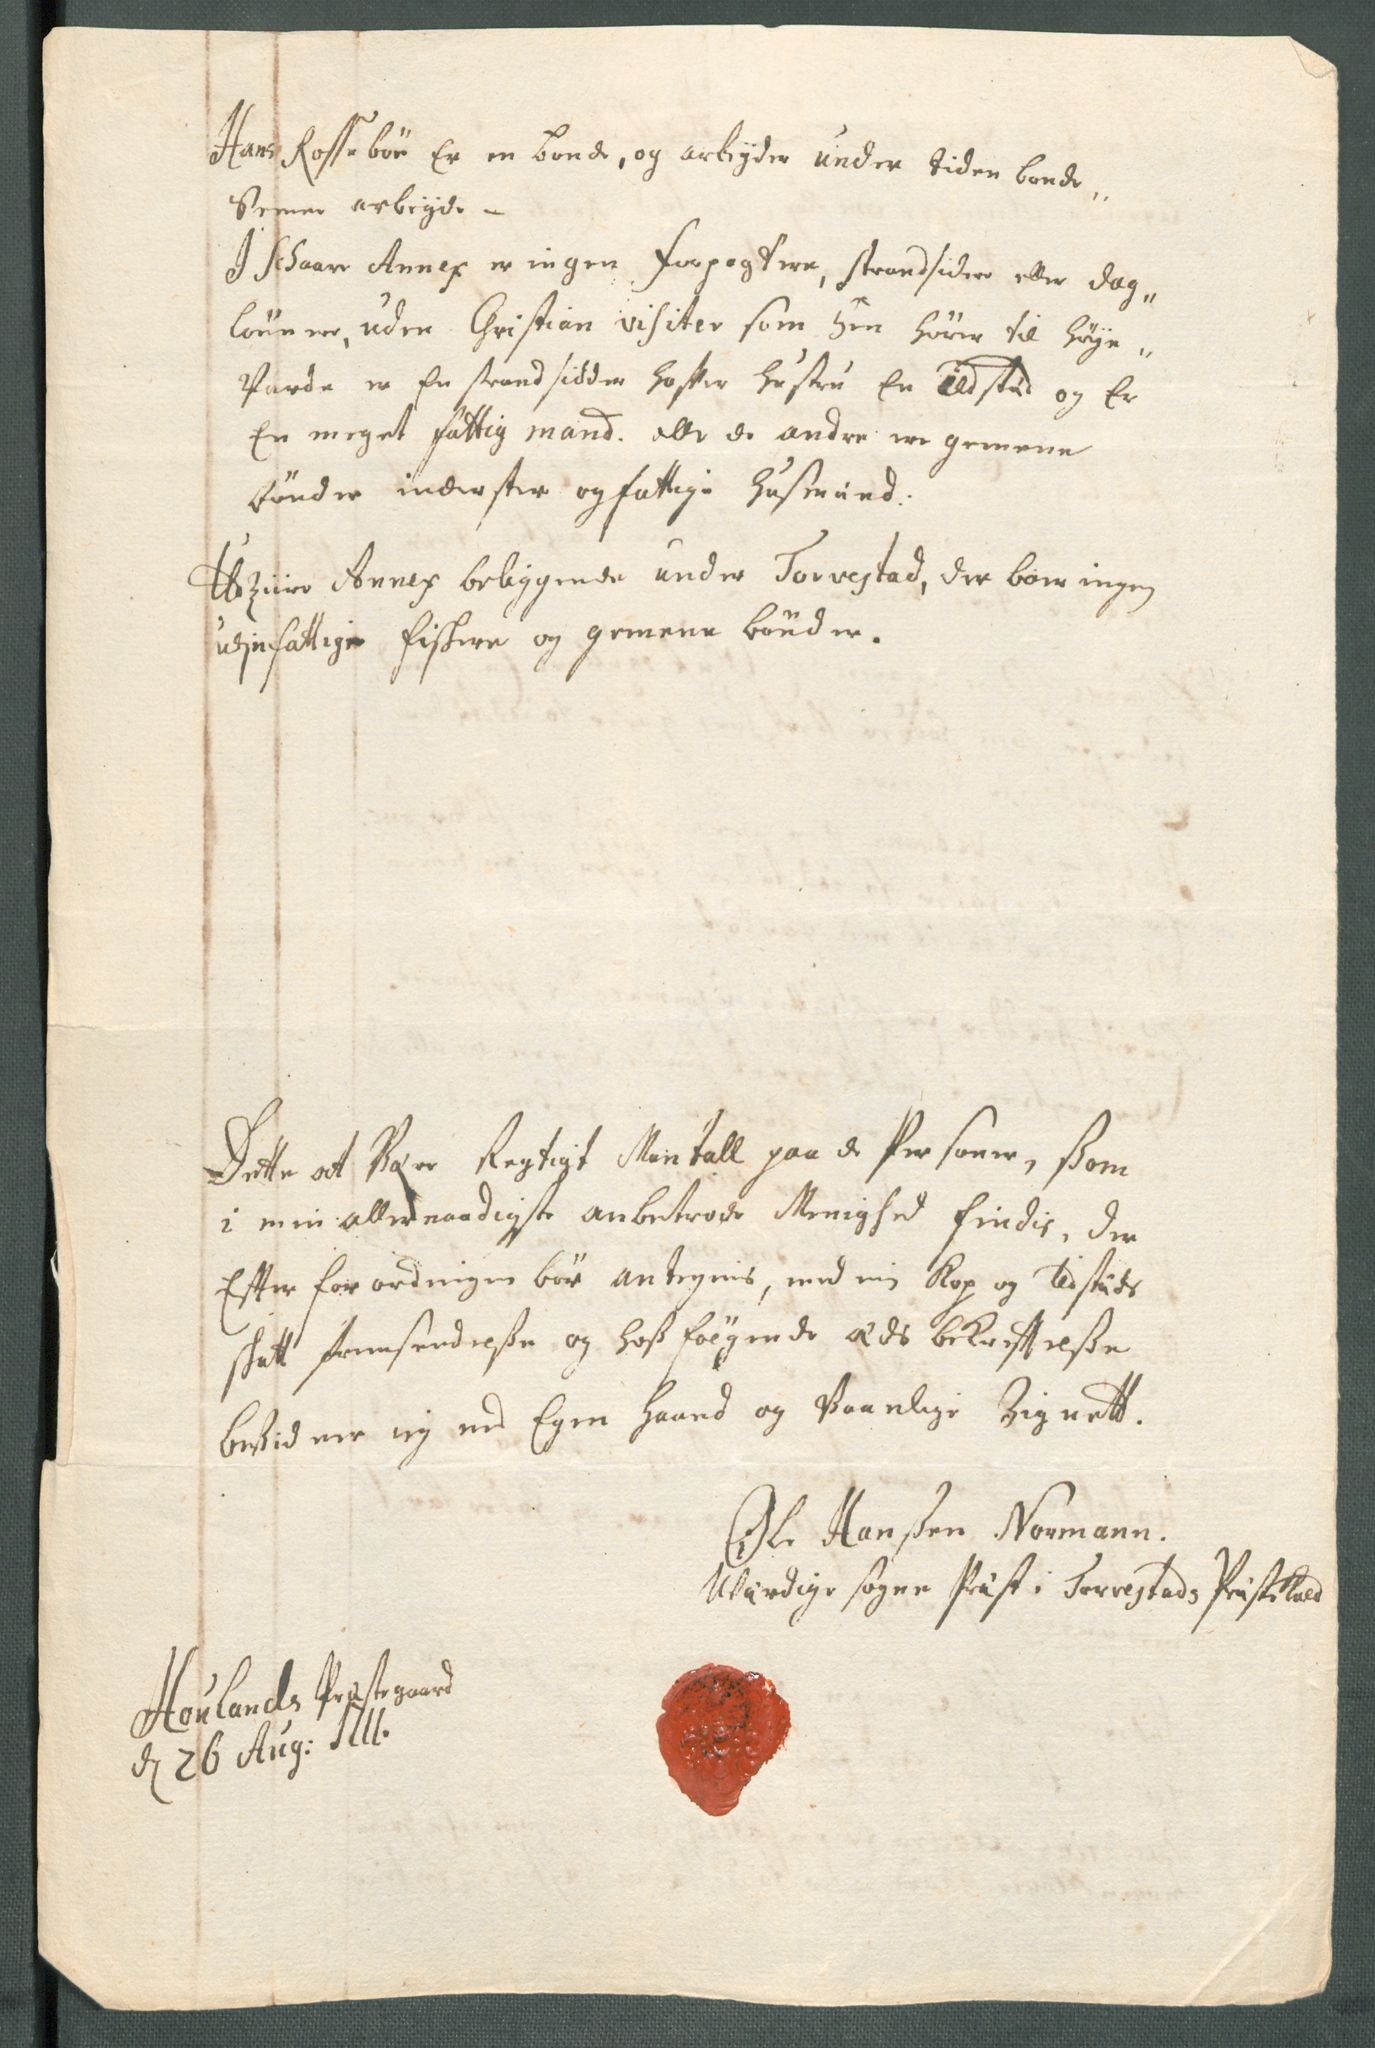 Hans Rosseböe Er en bonde, og arbeyder under tiden bonde„
Semer arbeyde -
I Schaare Annex er ingen forpagtere, strandsidere eller dag„
löunere, uden Christian visiter som hen hörer til höye„
Varde er En strandsidder hafver hustru En Ildsted og Er
En meget fattig mand. alle de andre ere gemene
bönder inderster og fattige husmænd.
Udziire Annex beliggende under Torvestad, der boer ingen
uden fattige fiskere og gemene bönder.
Dette at Være Regtigt Mantall paa de Personer, ßom
i min allernaadigste anbetrode Menighed findis, der
Efter forordningen bör antegnis, med min Kop og Ildsteds
skatt fremsendelße og hoßföyende æds bekreftelße
beßidner ieg med Egen haand og Vaanlige Zignett.
Ole Hanßen Normann.
Uværdige sogne Præst i Torvestads Præstekald
Houlands Præstegaard
d 26 Aug: 1711.